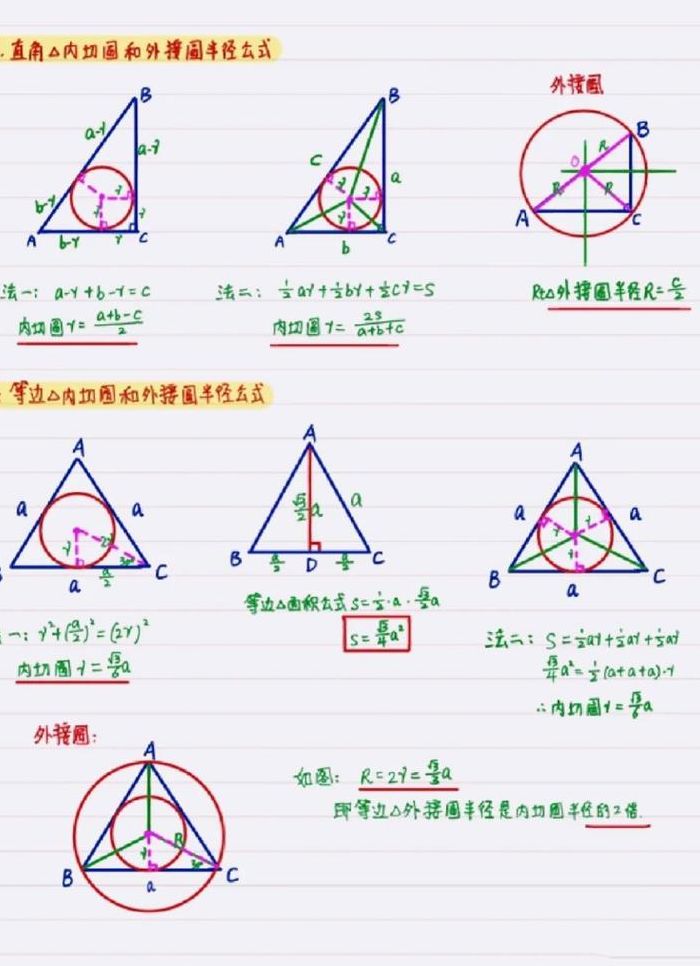 .直角△内切圆和外接圆半径公式
外接圆
B
a-r
a-r
b-r
r
r
r
A
b-r
r
C
B
c
a
r
r
r
A
b
C
B
O
R
R
R
A
C
法一: a-r+b-r=c
内切圆r=\frac{a+b-c}{2}
法二: ½ar+½br+½cr=S
内切圆r=\frac{2S}{a+b+c}
Rt△外接圆半径R=\frac{c}{2}
等边△内切圆和外接圆半径公式
A
a
a
r
2r
30°
C
a
\frac{a}{2}
A
\frac{√3}{2}a
a
B
\frac{a}{2}
D
\frac{a}{2}
C
A
a
a
r
r
r
B
a
C
一: r²+(\frac{a}{2})²=(2r)²
内切圆r=\frac{√3}{6}a
等边△面积公式S=½·a·\frac{√3}{2}a
S=\frac{√3}{4}a²
法二: S=½ar+½ar+½ar
\frac{√3}{4}a²=½(a+a+a)·r
∴内切圆r=\frac{√3}{6}a
外接圆:
A
R
r
30°
B
a
C
如图: R=2r=\frac{√3}{3}a
即等边△外接圆半径是内切圆半径的2倍.